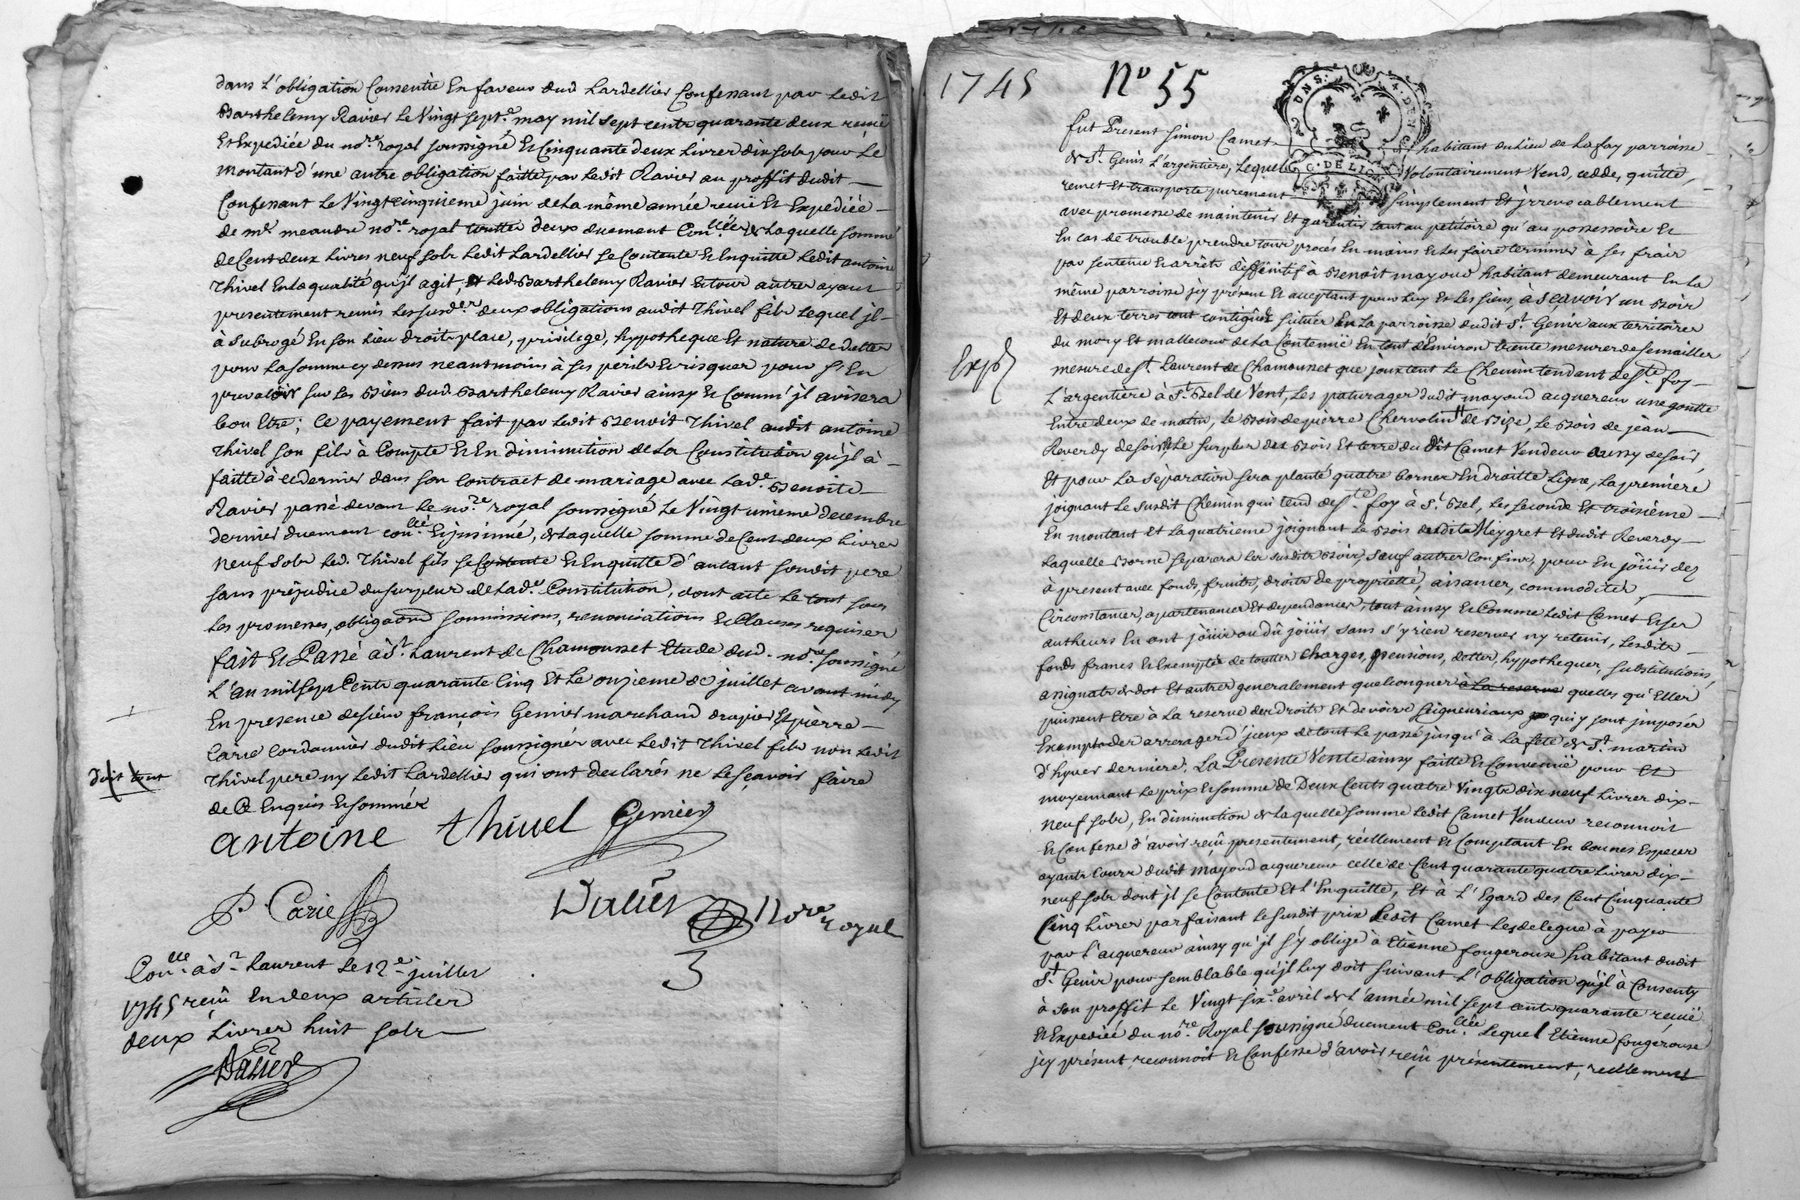 dans L'obligation Consentie En faveur dud. Lardellier Confessant par Ledit
Barthelemy Ravier Le Vingt sept.e may mil sept cents quarante deux reçuë
Et Expediée du no.re royal soussigné Et Cinquante deux Livres dix sols pour Le
montant d'une autre obligation faitte par Ledit Ravier au proffit dudit
Confessant Le Vingt cinquieme juin de La même année reçuë Et Expediée
de m.e meandre no.re royal toutte deux duement Con.llées de Laquelle somme
de Cent deux Livres neuf sols Ledit Lardellier se Contente Et Enquitte Ledit antoine
Thivel En La qualité qu'jl agit, Led. Barthelemy Ravier Et tour autre ayant
presentement remis Les susd. deux obligations audit Thivel fils Lequel jl
à Subrogé En son Lieu droit place, privilege, hypotheque Et nature de dette
pour La somme cy dessus neantmoins à ses perils Et risques pour s'En
prevaloir sur Les Biens dud. Barthelemy Ravier ainsy Et Comm' jl avisera
bon Etre; Ce payement fait par Ledit Benoit Thivel audit antoine
Thivel son fils à Compte Et En diminution de La Constitution qu'jl à
faitte à ce dernier dans son Contract de mariage avec Lad.e Benoite
Ravier passé devant Le no.re royal soussigné Le Vingt unieme decembre
dernier duement con.llé Et jnsinué, de Laquelle somme de Cent deux Livres
neuf sols Led. Thivel fils se Contente Et Enquitte d'autant sondit pere
sans préjudice du surplus de Lad.e Constitution, dont acte Le tout sous
Les promesses, obligaons soumissions, renonciations Et Clauses requises
fait Et Passé à S.t Laurent de Chamousset Etude dud. no.re soussigné
L'an mil sept Cents quarante Cinq Et Le onzieme de juillet avant midy
En presence de sieur françois Genier marchand drapier Et pierre
Carie Cordonnier dudit Lieu soussignés avec Ledit Thivel fils non Ledit
Thivel pere ny Ledit Lardellier qui ont declarés ne Le sçavoir faire
de Ce Enquis Et sommés
antoine thivel Genier
P. Carie
Dalier No.re royal
3
Con.llé à S.t Laurent Le 12.e juillet
1745 reçu En deux articles
deux Livres huit sols
Dalier
1745 N.o 55
G. DE LION
fut Present Simon Camet habitant du Lieu de La fay parroisse
de S.t Genis L'argentiere, Lequel Volontairement Vend, cedde, quitte,
remet Et transporte purement simplement Et jrrevocablement
avec promesse de maintenir Et garentir tant au petitoire qu'au possessoire Et
En cas de trouble prendre tour procés En mains Et Les faire terminer à ses frais
par sentence Et arrêts deffinitifs à Benoit mayoud habitant demeurant En La
même parroisse jcy présent Et acceptant pour Luy Et Les siens, à sçavoir un Bois
Et deux terres tout contiguës situés En La parroisse dudit S.t Genis aux territoires
du mory Et mallecour de La Contenüe En tout d'Environ trente mesures de semailles
Exp.é
mesure de S.t Laurent de Chamousset que jouxtent Le Chemin tendant de S.te foy
L'argentiere à S.t Bel de Vent, Les paturages dudit mayoud acquereur une goutte
Entre deux de matin, Le Bois de pierre Chervolin de Bize, Le Bois de jean
Reverdy de soir Et Le surplus des Bois Et terre du Dit Camet Vendeur aussy de soir,
Et pour La séparation sera planté quatre bornes En droitte Ligne, La premiere
joignant Le susdit Chemin qui tend de S.te foy à S.t Bel, Les seconde Et troisième
En montant Et La quatrieme joignant Le Bois Neygret Et dudit Reverdy
Laquelle Borne separera Les susdits Bois, sauf autres Confins, pour En joüir dez
à present avec fonds, fruits, droits de proprietté, aisances, commodités,
Circonstances, apartenances Et dependances, tout ainsy Et Comme Ledit Camet Et ses
autheurs En ont jöüir ou dû joüir, sans s'y rien reserver ny retenir, Lesdits
fonds francs Et Exempts de touttes charges, pensions, dettes, hypotheques, substitutions,
assignats de dot Et autres generalement quelconques à La reserve quelles qu'Elles
puissent Etre à La reserve des droits Et devoirs seigneuriaux qui y sont jmposés
Exempts des arrerages d'jceux de tout Le passé jusqu'à La fête de S.t martin
d'hyver derniere. La Presente Vente ainsy faitte Et Convenüe pour Et
moyennant Le prix Et somme de Deux Cents quatre Vingts dix neuf Livres dix
neuf sols, En diminution de Laquelle somme Ledit Camet Vendeur reconnoit
Et Confesse d'avoir reçû presentement, réellement Et Comptant En bonnes Especes
ayants Cours dudit Mayoud acquereur celle de Cent quarante quatre Livres dix
neuf sols dont jl se Contente Et L'Enquitte, Et à L'Egard des Cent Cinquante
Cinq Livres parfaisant Le susdit prix Ledit Camet Les delegue à payer
par L'acquereur ainsy qu'jl s'y oblige à Etienne fougerouse habitant dudit
S.t Genis pour semblable qu'jl Luy doit suivant L'obligation qu'jl à Consenty
à son proffit Le Vingt six.e avril de L'année mil sept cents quarante reçuë
Et Expediée du no.re Royal soussigné duement Con.llée Lequel Etienne fougerouse
jcy présent reconnoit Et Confesse d'avoir reçû présentement, reellement